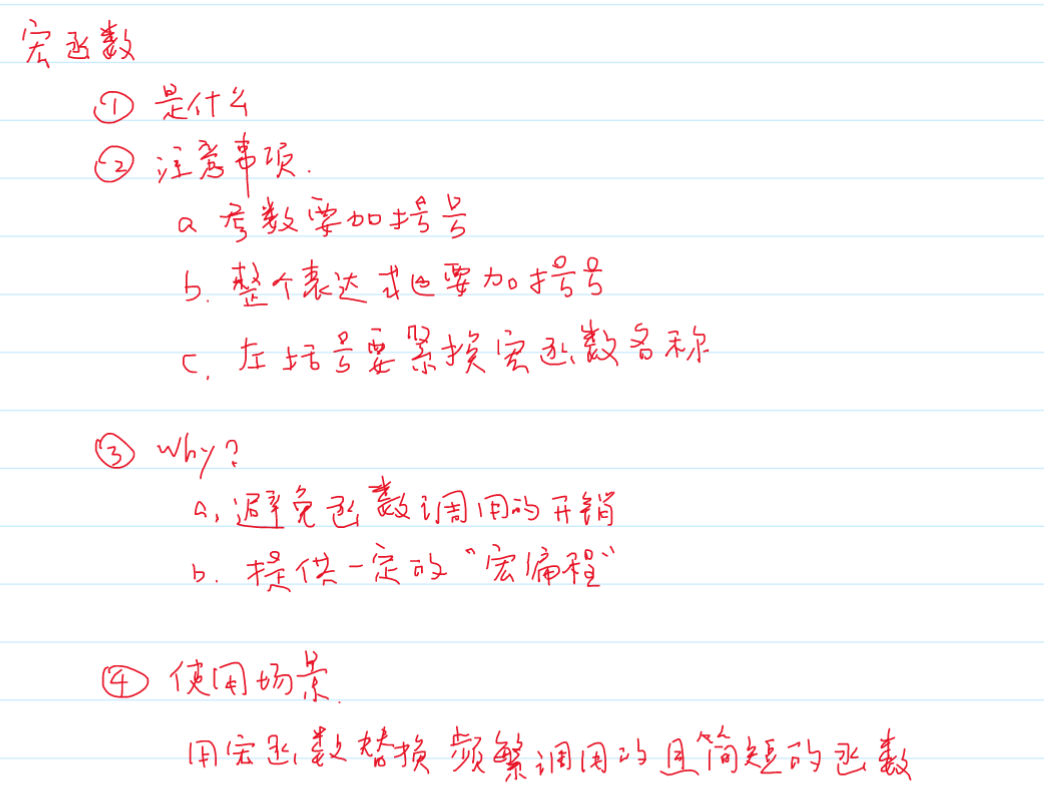 宏函数
① 是什么
② 注意事项.
a 参数要加括号
b. 整个表达式也要加括号
c. 左括号要紧挨宏函数名称
③ Why?
a. 避免函数调用的开销
b. 提供一定的“宏编程”
④ 使用场景.
用宏函数替换频繁调用的且简短的函数